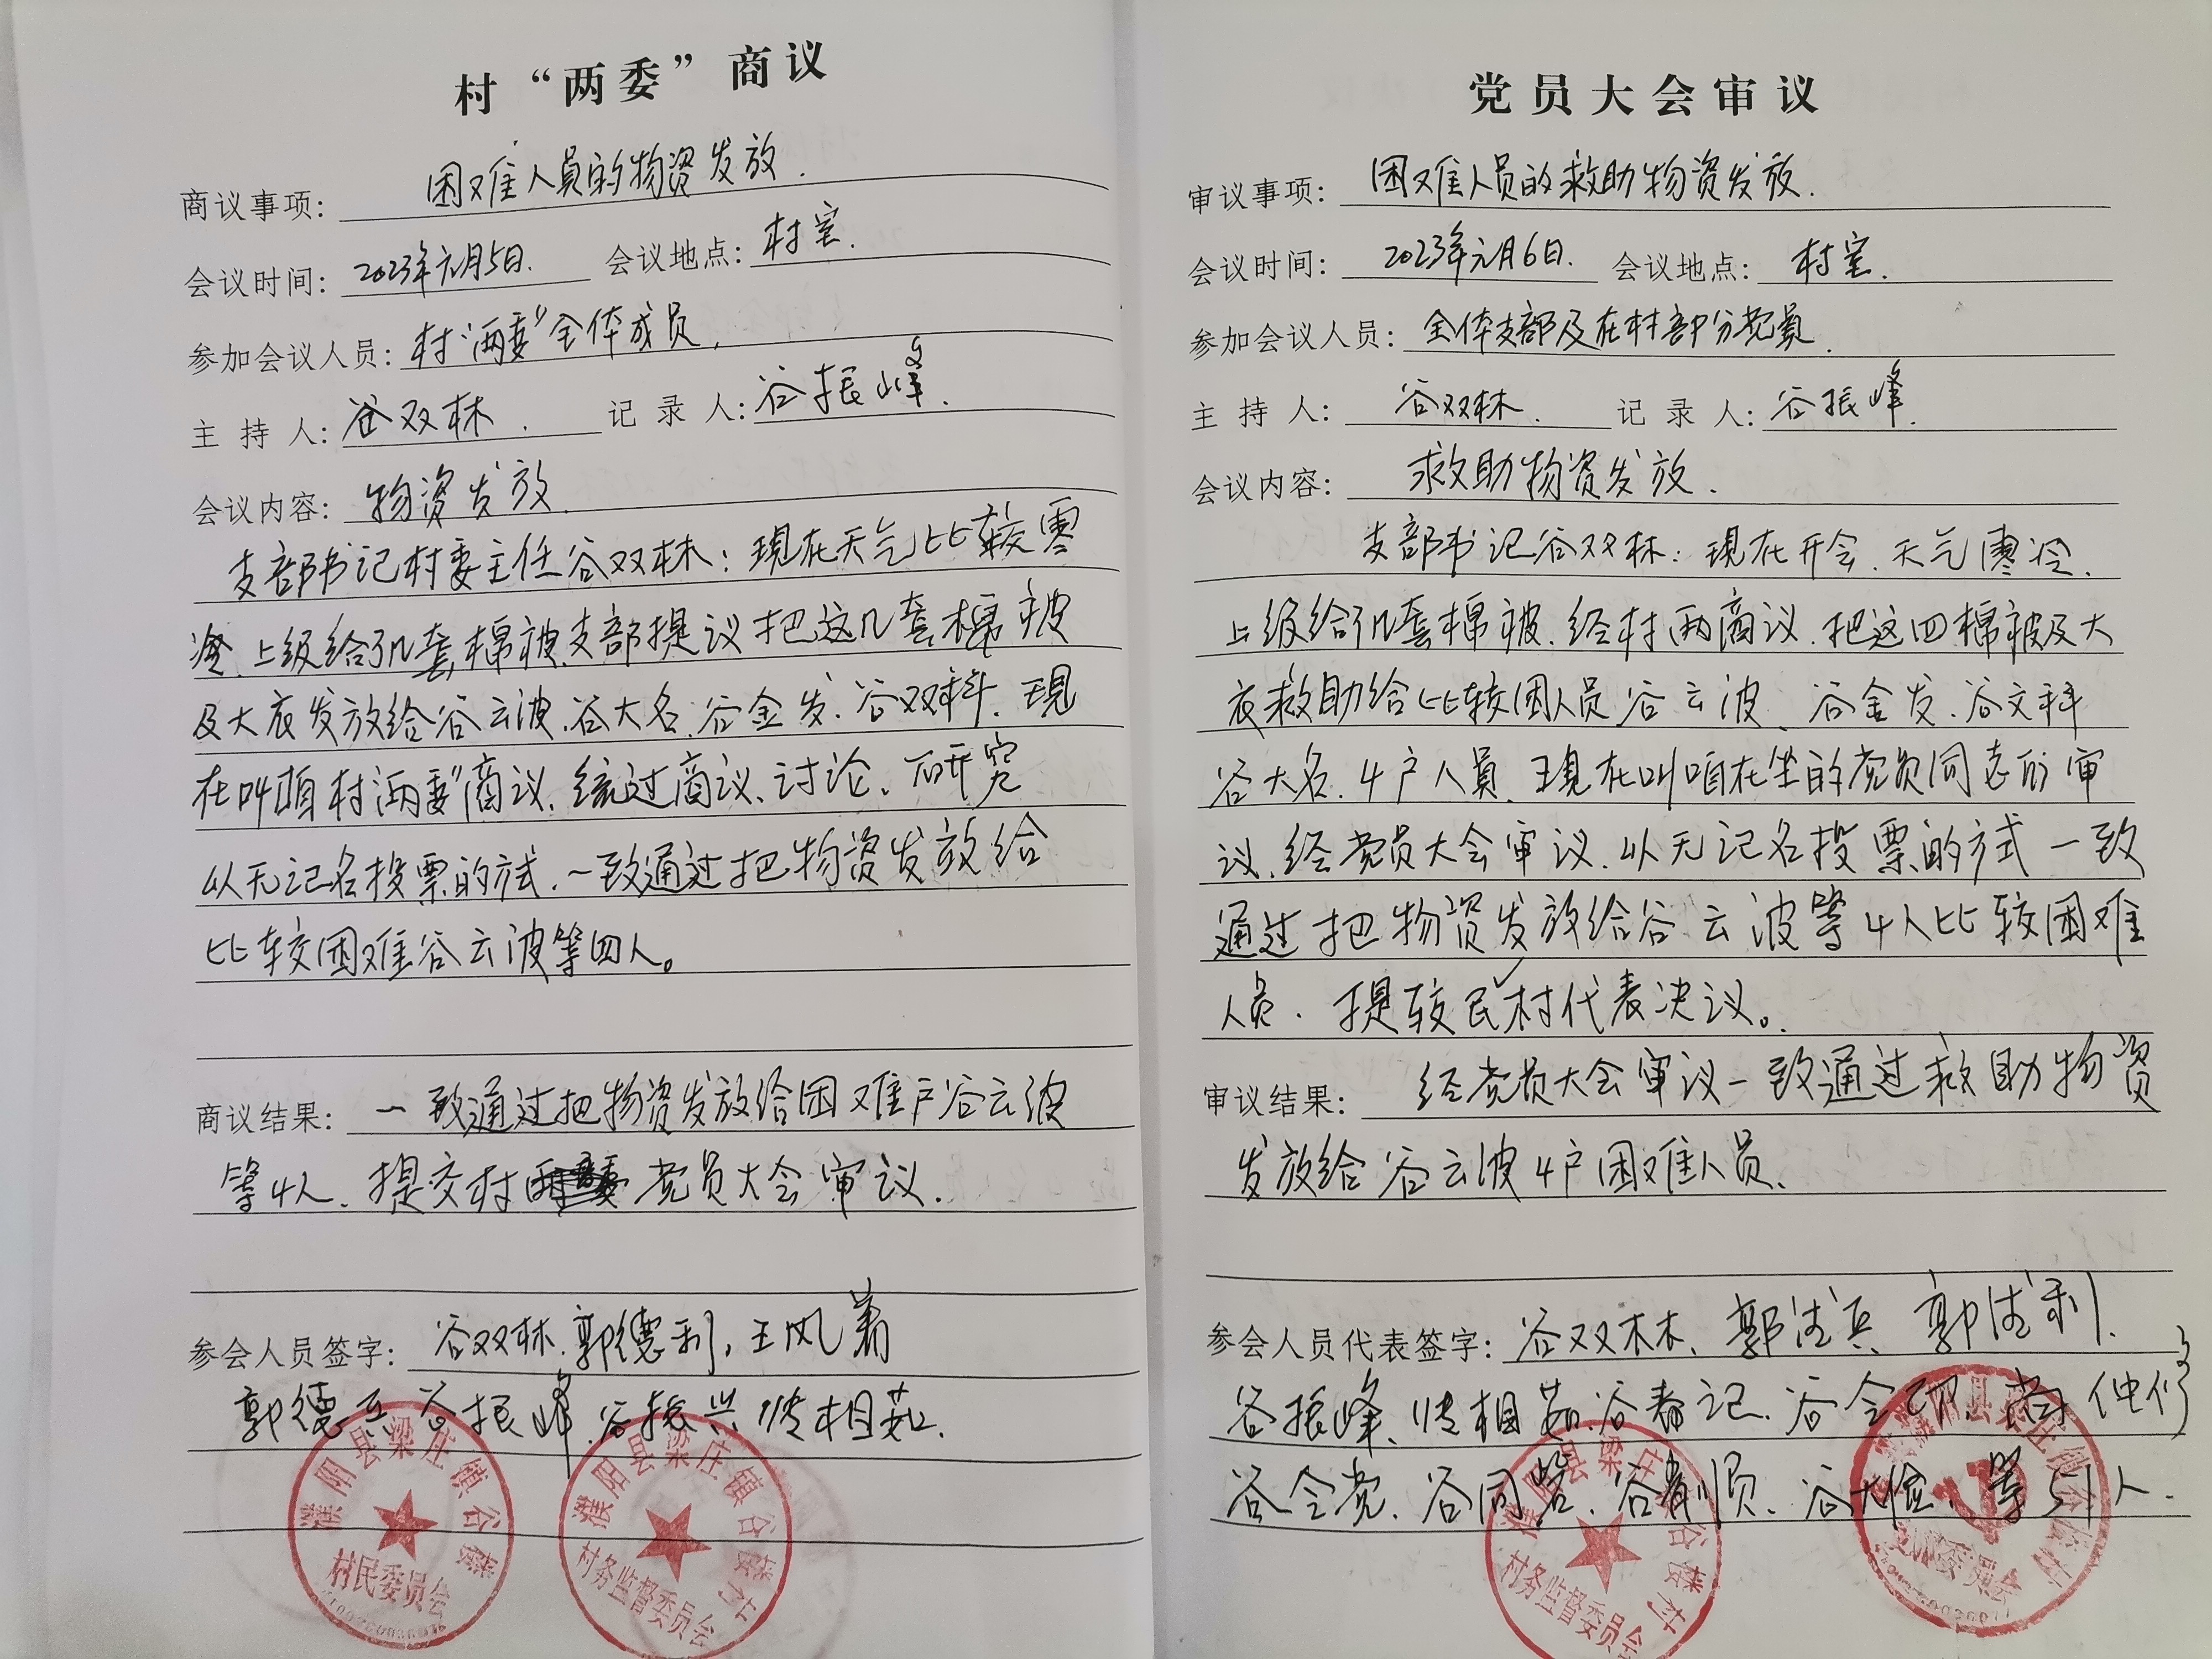 村“两委”商议
商议事项：困难人员的物资发放.
会议时间：2023年元月5日. 会议地点：村室.
参加会议人员：村“两委”全体成员,
主 持 人：谷双林. 记 录 人：谷振峰.
会议内容：物资发放.
支部书记村委主任谷双林：现在天气比较寒
冷.上级给了几套棉被.支部提议把这几套棉被
及大衣发放给谷云波.谷大名.谷金发.谷双科.现
在叫咱村“两委”商议.经过商议、讨论、研究
从无记名投票的方式.一致通过把物资发放给
比较困难谷云波等四人。
商议结果：一致通过把物资发放给困难户谷云波
等4人.提交村党员大会审议.
参会人员签字：谷双林.郭德利,王凤
郭德兵.谷振峰.谷振兴 相茹.
濮阳县梁庄镇谷楼
村民委员会
濮阳县梁庄镇谷楼村
村务监督委员会
党员大会审议
审议事项：困难人员的救助物资发放.
会议时间：2023年元月6日. 会议地点：村室.
参加会议人员：全体支部及在村部分党员.
主 持 人：谷双林. 记 录 人：谷振峰.
会议内容：救助物资发放.
支部书记谷双林：现在开会.天气寒冷.
上级给了几套棉被.经村两商议.把这四棉被及大
衣救助给比较困人员谷云波、谷金发.谷文科
谷大名.4户人员.现在叫咱在坐的党员同志们审
议.经党员大会审议.从无记名投票的方式一致
通过把物资发放给谷云波等4人比较困难
人员.提较民村代表决议。
审议结果：经党员大会审议一致通过救助物资
发放给谷云波4户困难人员.
参会人员代表签字：谷双林、郭德兵 郭德利.
谷振峰、 相茹.谷春记.谷令
谷令党.谷同 .谷 顺.谷大俭.等51人.
濮阳县梁庄镇谷楼村
村务监督委员会